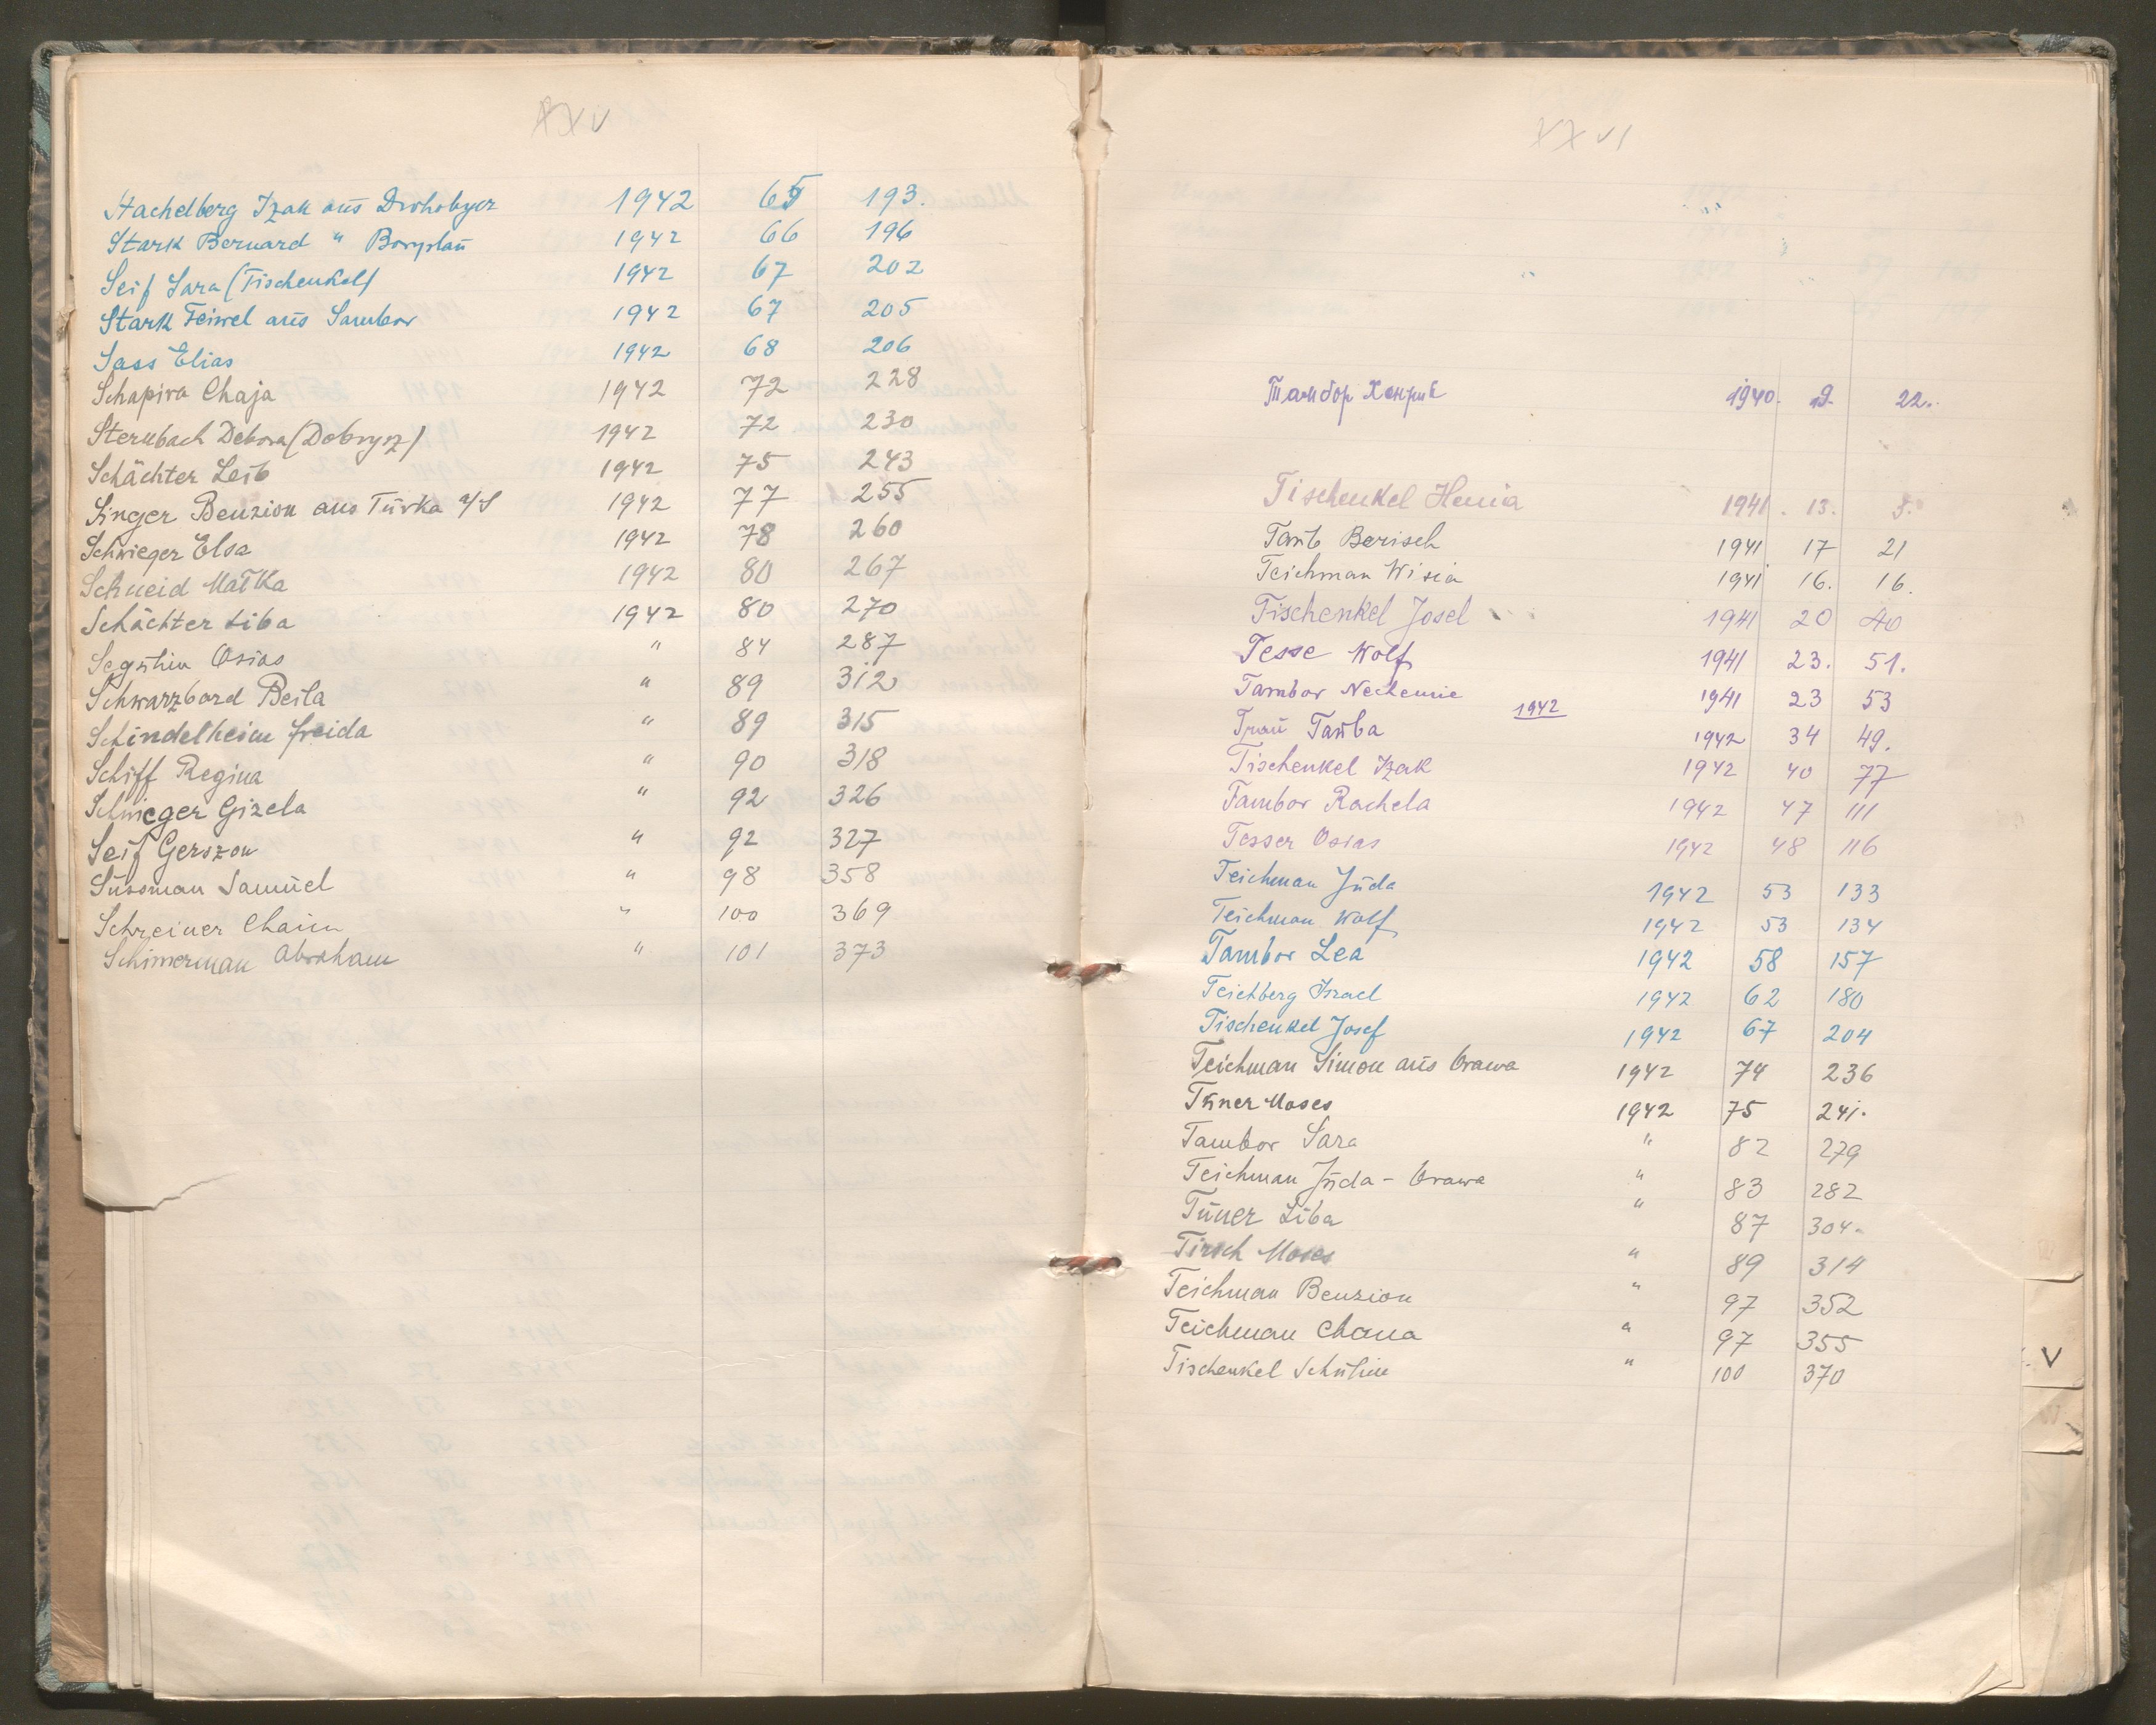 XXV
Stachelberg Izak aus Drohobycz 1942 65 193.
Stark Bernard " Boryslau 1942 66 196
Seif Sara (Tischenkel) 1942 67 202
Stark Feiwel aus Sambor 1942 67 205
Sass Elias 1942 68 206
Schapira Chaja 1942 72 228
Sternbach Debora (Dobrysz) 1942 72 230
Schächter Leib 1942 75 243
Singer Benzion aus Turka a/S 1942 77 255
Schwieger Elsa 1942 78 260
Schneid Malka 1942 80 267
Schächter Liba 1942 80 270
Osias " 84 287
Schwarzbard Beila " 89 312
Schindelheim Freida " 89 315
Schiff Regina " 90 318
Schwieger Gizela " 92 326
Seif Gerszon " 92 327
Süssman Samuel " 98 358
Schreiner Chaim " 100 369
Schimerman Abraham " 101 373
XXVI
Тамбор Хенрик 1940. 9. 22.
Tischenkel Henia 1941. 13. 5.
Taub Berisch 1941 17 21
Teichman Wisia 1941 16. 16.
Tischenkel Josel 1941 20 40
Tesse Wolf 1941 23. 51.
Tambor Nechemie 1941 23 53
1942
Trau Tauba 1942 34 49.
Tischenkel Izak 1942 40 77
Tambor Rachela 1942 47 111
Tesser Osias 1942 48 116
Teichman Juda 1942 53 133
Teichman Wolf 1942 53 134
Tambor Lea 1942 58 157
Teichberg Israel 1942 62 180
Tischenkel Josef 1942 67 204
Teichman Simon aus Orawa 1942 74 236
Tuner Moses 1942 75 241.
Tambor Sara " 82 279
Teichman Juda - Orawa " 83 282
Tuner Liba " 87 304.
Tirsch Moses " 89 314
Teichman Benzion " 97 352
Teichman Chana " 97 355
Tischenkel Schulim " 100 370
V